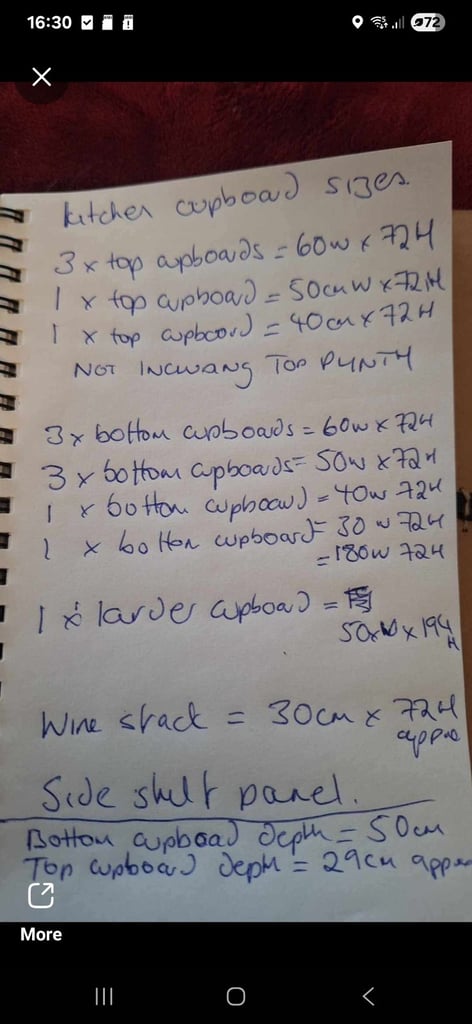 16:30
72
kitchen cupboard sizes.
3 x top cupboards = 60w x 72H
1 x top cupboard = 50cm W x 72H
1 x top cupboard = 40cm x 72H
NOT INCLUDING TOP PLINTH
3 x bottom cupboards = 60w x 72H
3 x bottom cupboards = 50w x 72H
1 x bottom cupboard = 40w 72H
1 x bottom cupboard = 30 w 72H
= 180w 72H
1 x larder cupboard =
50xW x 194
H
Wine stack = 30cm x 72H
approx
Side shelf panel.
Bottom cupboard depth = 50cm
Top cupboard depth = 29cm approx
More